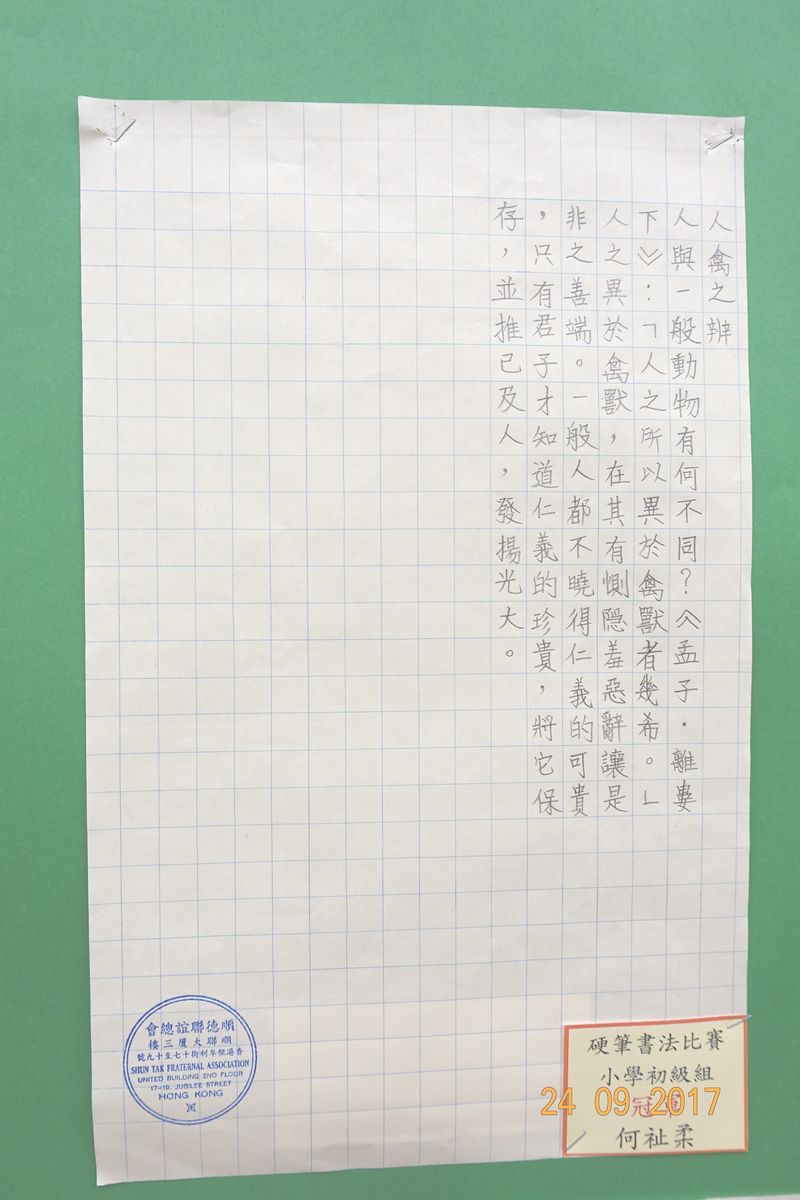 人禽之辨
人與一般動物有何不同?《孟子·離婁
下》:「人之所以異於禽獸者幾希。」
人之異於禽獸,在其有惻隱羞惡辭讓是
非之善端。一般人都不曉得仁義的可貴
,只有君子才知道仁義的珍貴,將它保
存,並推己及人,發揚光大。
順德聯誼總會
順聯大廈三樓
香港租庇利街十七至十九號
SHUN TAK FRATERNAL ASSOCIATION
UNITED BUILDING 2ND FLOOR
17-19, JUBILEE STREET
HONG KONG
硬筆書法比賽
小學初級組
冠軍
何祉柔
24 09 2017